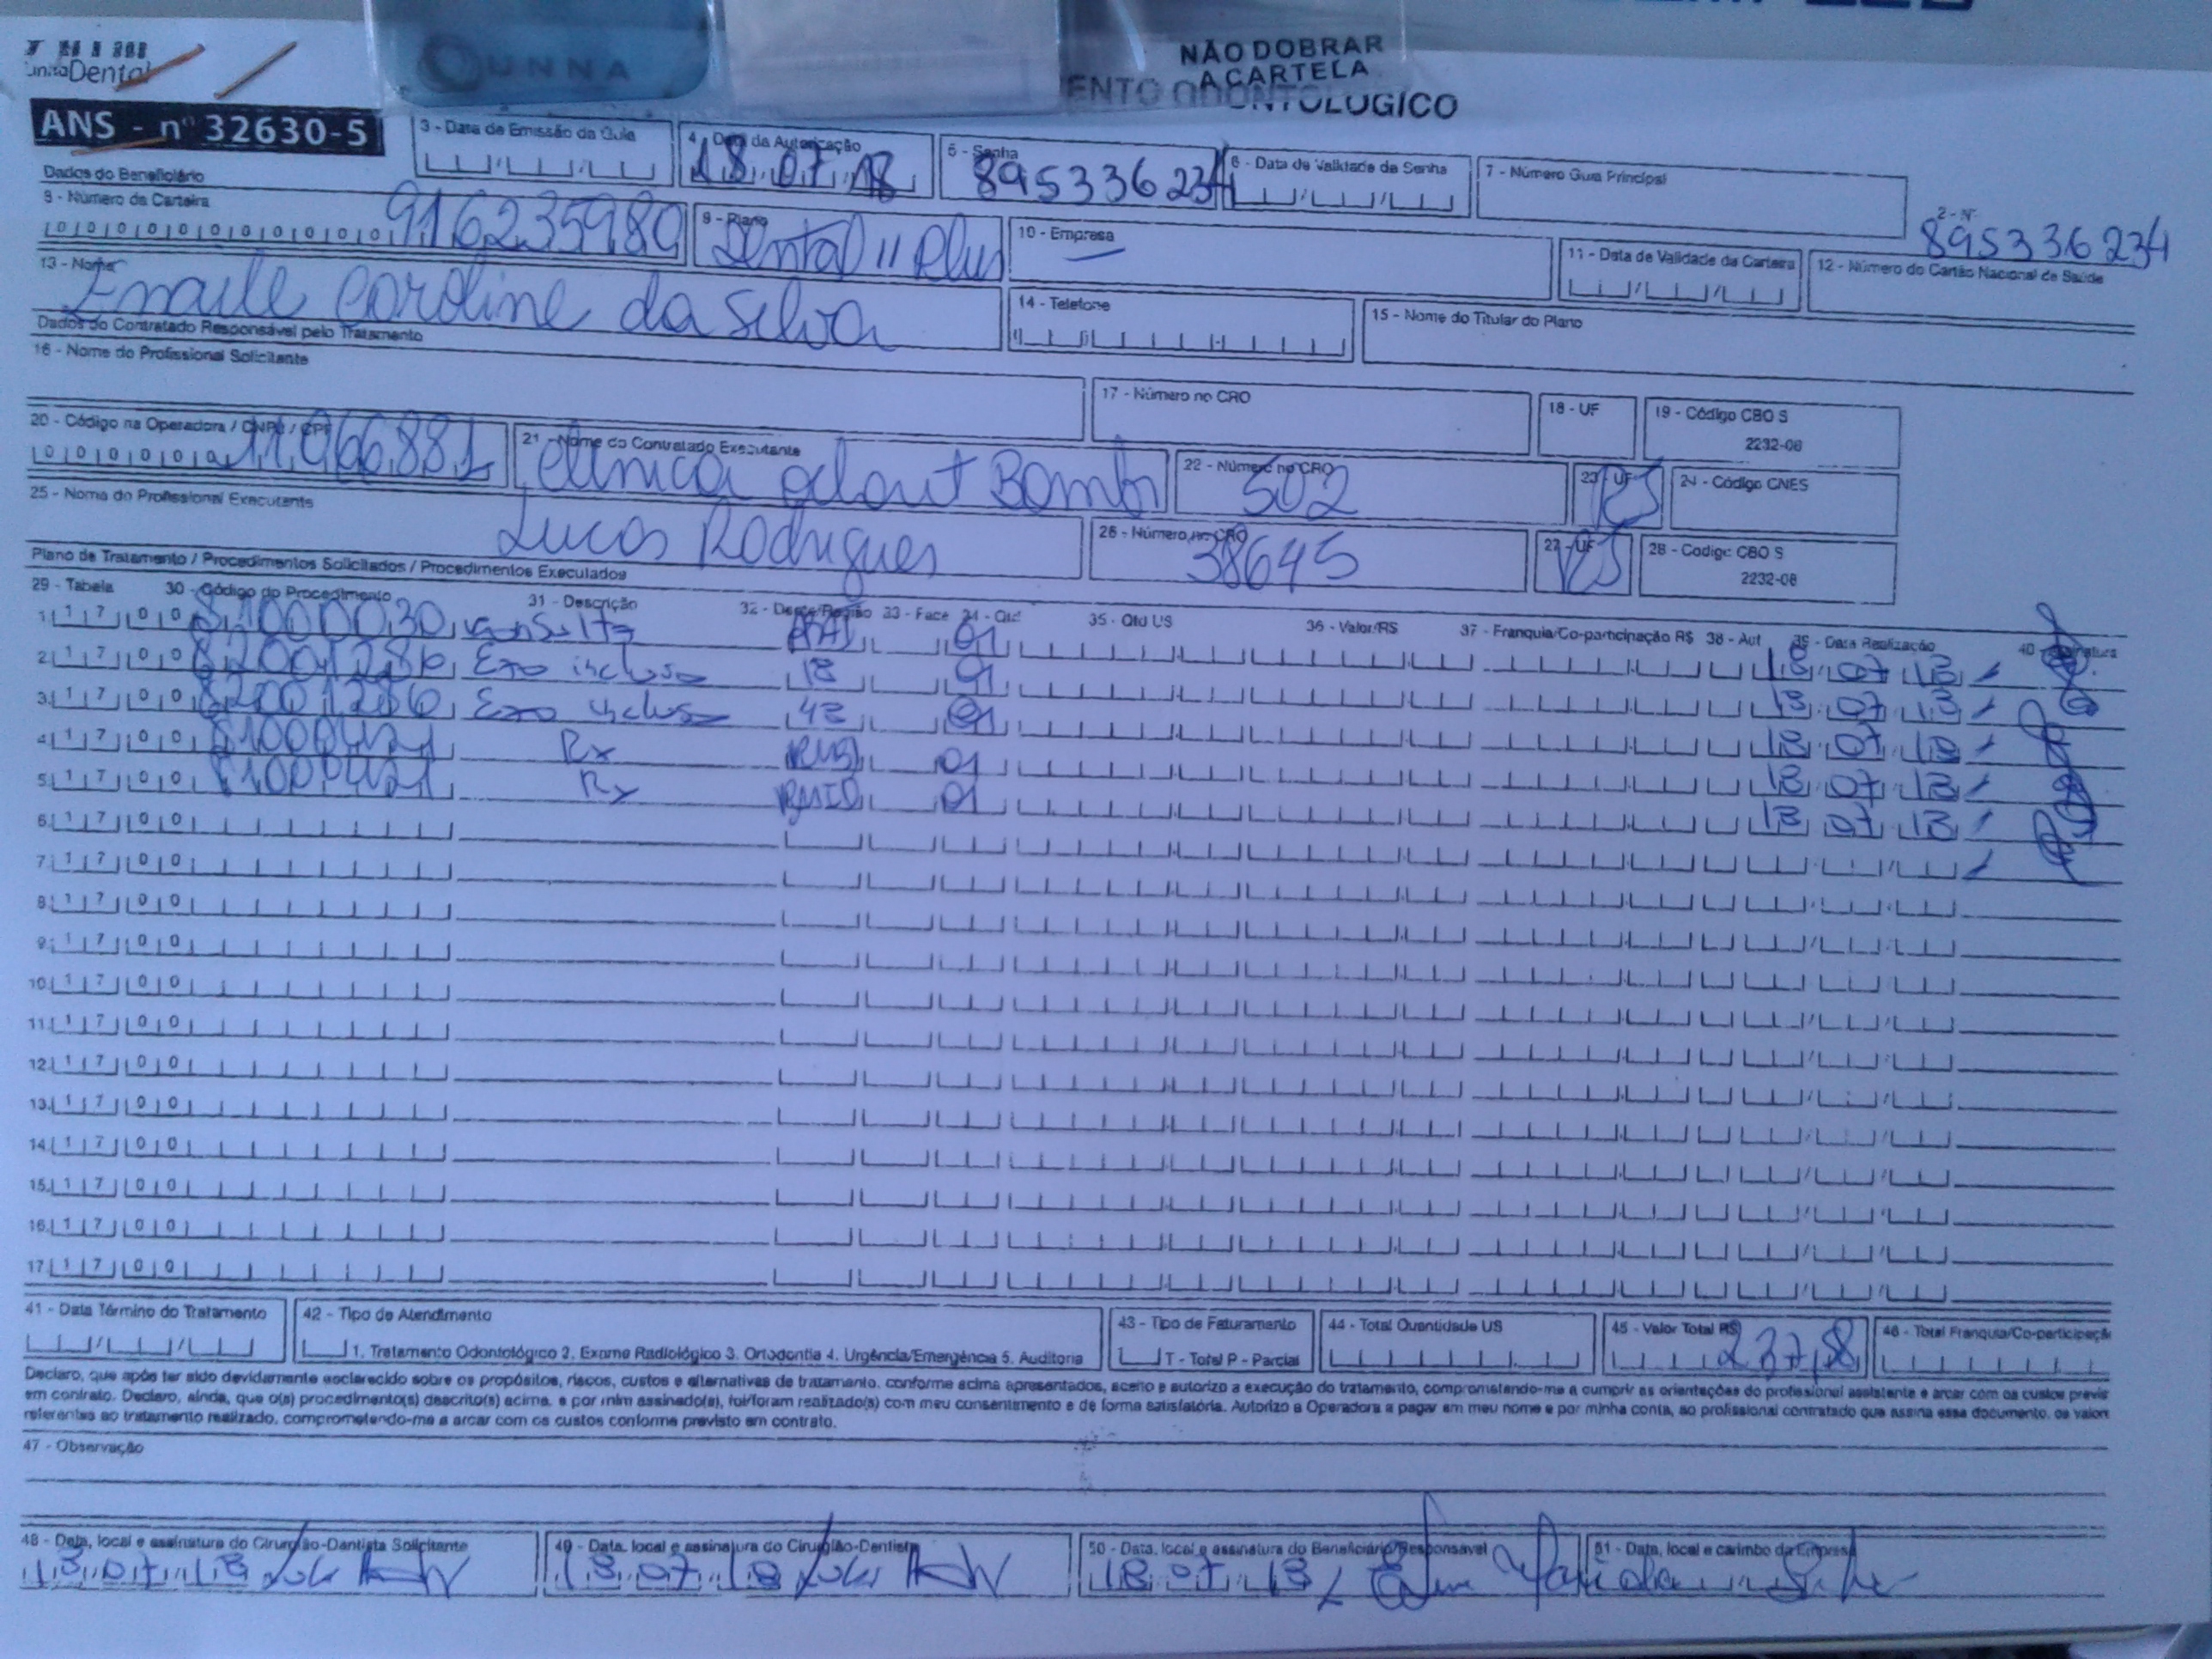 unnaDental
QUNNA
NÃO DOBRAR
A CARTELA
ENTO ODONTOLÓGICO
ANS - nº 32630-5
3 - Data de Emissão da Guia
4 - Data da Autorização
18 07 18
5 - Senha
895336234
6 - Data de Validade da Senha
7 - Número Guia Principal
2 - Nº
895336234
Dados do Beneficiário
9 - Número da Carteira
00000000000916235980
9 - Plano
Dental II Plus
10 - Empresa
11 - Data de Validade da Carteira
12 - Número do Cartão Nacional de Saúde
13 - Nome
da Silva
14 - Telefone
15 - Nome do Titular do Plano
Dados do Contratado Responsável pelo Tratamento
16 - Nome do Profissional Solicitante
17 - Número no CRO
18 - UF
19 - Código CBO S
2232-08
20 - Código na Operadora / CNPJ / CPF
00000011966881
21 - Nome do Contratado Executante
Clinica odont Bomb
22 - Número no CRO
502
23 - UF
RS
24 - Código CNES
25 - Nome do Profissional Executante
Lucas Rodrigues
26 - Número no CRO
38645
27 - UF
RS
28 - Codigo CBO S
2232-08
Plano de Tratamento / Procedimentos Solicitados / Procedimentos Executados
29 - Tabela 30 - Código do Procedimento 31 - Descrição 32 - Dente/Região 33 - Face 34 - Qtd 35 - Qtd US 36 - Valor/RS 37 - Franquia/Co-participação R$ 38 - Aut 39 - Data Realização 40 - Assinatura
1 17 00 81000030 consulta 01 18 07 18
2 17 00 82001286 Exo incluso 18 01 18 07 18
3 17 00 82001286 Exo incluso 48 01 18 07 18
4 17 00 81000421 Rx 01 18 07 18
5 17 00 81000421 Rx 01 18 07 18
6 17 00
7 17 00
8 17 00
9 17 00
10 17 00
11 17 00
12 17 00
13 17 00
14 17 00
15 17 00
16 17 00
17 17 00
41 - Data Término do Tratamento
42 - Tipo de Atendimento
1. Tratamento Odontológico 2. Exame Radiológico 3. Ortodontia 4. Urgência/Emergência 5. Auditoria
43 - Tipo de Faturamento
T - Total P - Parcial
44 - Total Quantidade US
45 - Valor Total R$
237,8
46 - Total Franquia/Co-participaçã
Declaro, que após ter sido devidamente esclarecido sobre os propósitos, riscos, custos e alternativas de tratamento, conforme acima apresentados, aceito e autorizo a execução do tratamento, comprometendo-me a cumprir as orientações do profissional assistente e arcar com os custos previs
em contrato. Declaro, ainda, que o(s) procedimento(s) descrito(s) acima, e por mim assinado(s), foi/foram realizado(s) com meu consentimento e de forma satisfatória. Autorizo a Operadora a pagar em meu nome e por minha conta, ao profissional contratado que assina esse documento, os valore
referentes ao tratamento realizado, comprometendo-me a arcar com os custos conforme previsto em contrato.
47 - Observação
48 - Data, local e assinatura do Cirurgião-Dentista Solicitante
18 07 18
49 - Data, local e assinatura do Cirurgião-Dentista
18 07 18
50 - Data, local e assinatura do Beneficiário/Responsável
18 07 18
51 - Data, local e carimbo da Empresa